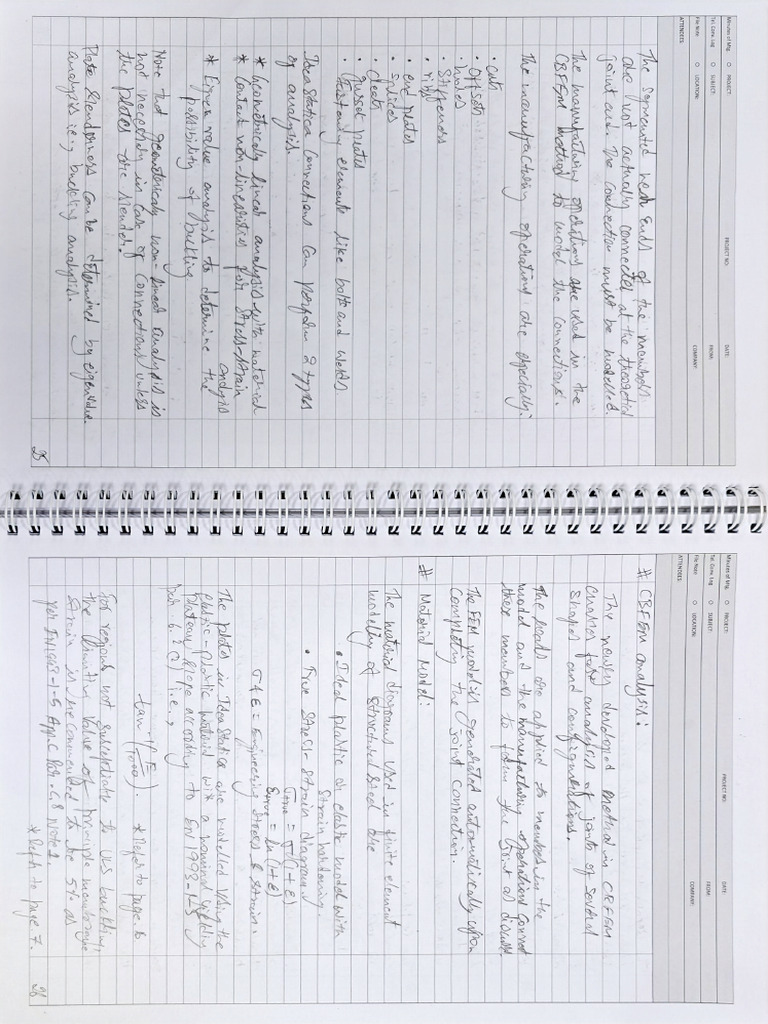 Minutes of Mtg. ○ PROJECT: PROJECT NO: DATE:
Tel. Conv. Log ○ SUBJECT: FROM:
File Note ○ LOCATION: COMPANY:
ATTENDEES:
The segmented mesh ends of the members
are not actually connected at the theoretical
joint area. The connection must be modelled.
The manufacturing operations are used in the
CBFEM method to model the connections.
The manufacturing operations are especially:
• cuts
• offsets
• holes
• Stiffeners
• ribs
• end plates
• splices
• cleats
• gusset plates
• fastening elements like bolts and welds
Idea Statica Connections can perform 2 types
of analysis.
* Geometrically linear analysis with material
* Contact non-linearities for stress-strain
analysis
* Eigen value analysis to determine the
possibility of buckling
Note that geometrically non-linear analysis is
not necessary in case of connections unless
the plates are slender!
Plate slenderness can be determined by eigenvalue
analysis i.e., buckling analysis.
25
Minutes of Mtg. ○ PROJECT: PROJECT NO: DATE:
Tel. Conv. Log ○ SUBJECT: FROM:
File Note ○ LOCATION: COMPANY:
ATTENDEES:
# CBFEM analysis:
The newly developed method in CBFEM
enables fast analysis of joints of several
shapes and configurations.
The loads are applied to members in the
model and the manufacturing operations connect
these members to form the joint as
The FEM model is generated automatically upon
completing the joint connection.
# Material Model:
The material diagrams used in finite element
modelling of structural steel are
• Ideal plastic or elastic model with
strain hardening.
• True stress-strain diagram.
σtrue = σ(1+ε)
εtrue = ln(1+ε)
σ & ε = Engineering stress & strain.
The plates in Idea Statica are modelled using the
elastic-plastic material with a nominal yielding
plateau slope according to EN1993-1-5
par. C.6 (2) i.e.,
tan⁻¹(E/1000). * Refer to page 6
For regions not susceptible to buckling,
the limiting value of principle membrane
strain is recommended to be 5% as
per EN1993-1-5 App. C Par. C.8 Note 1.
* Refer to page 7.
26